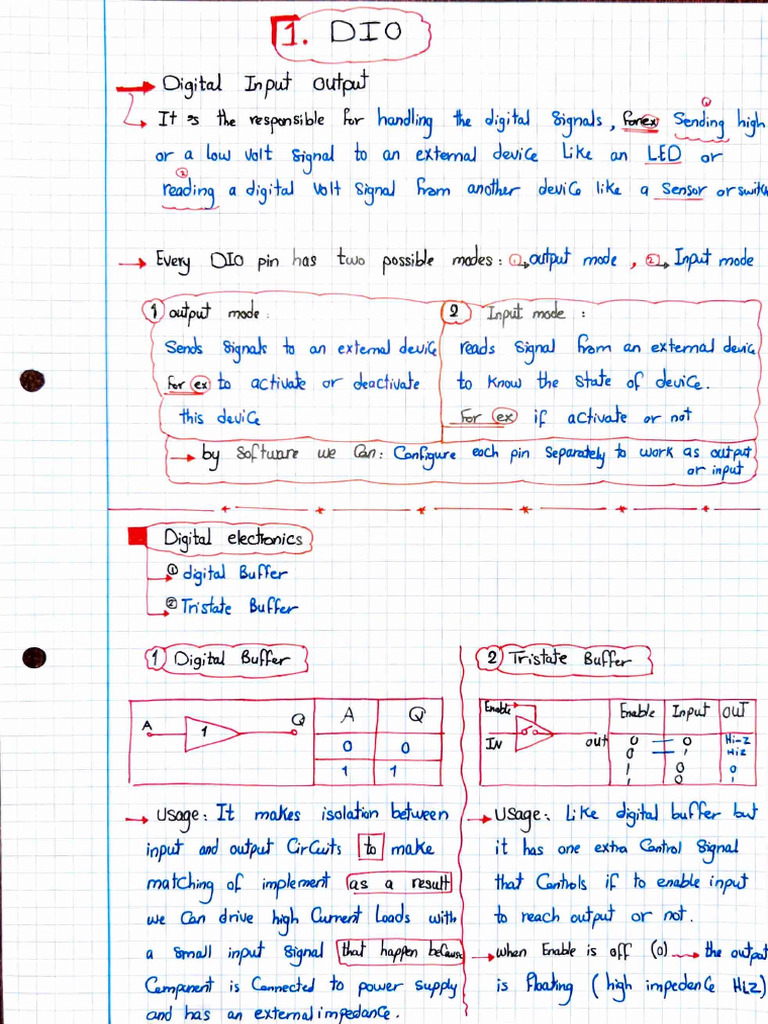 1. DIO
Digital Input Output
It is the responsible for handling the digital signals, for ex ① Sending high
or a low volt signal to an external device like an LED or
② reading a digital volt signal from another device like a Sensor or switch
Every DIO pin has two possible modes: ① output mode, ② Input mode
1 output mode:
Sends signals to an external device
for ex to activate or deactivate
this device
2 Input mode :
reads signal from an external device
to know the state of device.
For ex if activate or not
by software we can: Configure each pin separately to work as output
or input
Digital electronics
① digital Buffer
② Tristate Buffer
1 Digital Buffer
A 1 Q
A Q
0 0
1 1
Usage: It makes isolation between
input and output circuits to make
matching of implement as a result
we can drive high current loads with
a small input signal that happen because
Component is connected to power supply
and has an external impedance.
2 Tristate Buffer
Enable
IN out
Enable Input out
0 0 Hi-Z
0 1 Hiz
1 0 0
1 0 1
Usage: Like digital buffer but
it has one extra control signal
that controls if to enable input
to reach output or not.
when Enable is off (0) the output
is floating (high impedance HiZ)